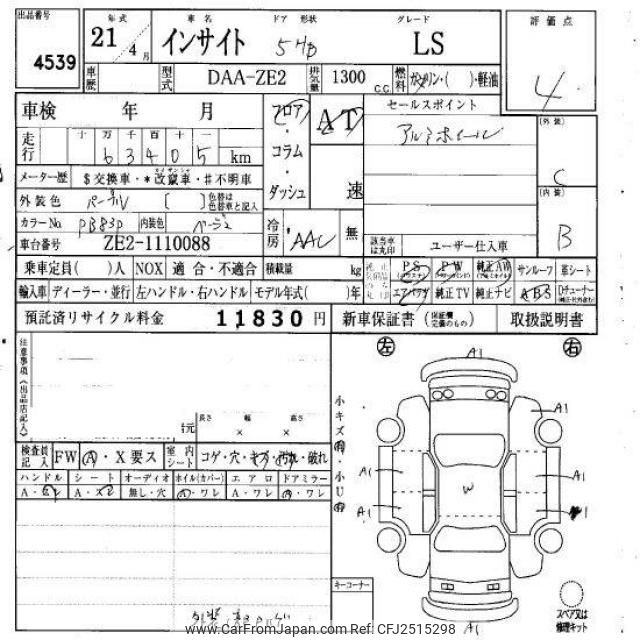 出品番号 4539
年式 21年 4月
車名 インサイト
ドア 形状 5HB
グレード LS
評価点 4
車歴
型式 DAA-ZE2
排気量 1300 C.C.
燃料 ガソリン・( )・軽油
車検 年 月
フロア・コラム・ダッシュ
AT 速
セールスポイント
アルミホイール
(外装) C
(内装) B
走行 十 万 千 百 十 一
63405 km
メーター歴 $交換車・*改竄車・#不明車
外装色 パープル [ ] 色替は色替車と記入
カラーNo PB83P 内装色 ベージュ
車台番号 ZE2-1110088
冷房 AAC 無
該当車は丸印 ユーザー仕入車
乗車定員( )人 NOX 適合・不適合 積載量 kg
PS PW 純正AW サンルーフ 革シート
輸入車 ディーラー・並行 左ハンドル・右ハンドル モデル年式( )年
エアバッグ 純正TV 純正ナビ ABS Dチューナー
預託済リサイクル料金 11830 円
新車保証書 (保証継完備のもの) 取扱説明書
注意事項(出品店記入)
長さ 幅 高さ
× ×
検査員記入 FW A・X要ス 室内シート コゲ・穴・キズ・汚れ・破れ
ハンドル シート オーディオ ホイル(カバー) エアロ ドアミラー
無し・穴 A・ワレ A・ワレ A・ワレ
左 右
小キズ有・小U有
A1
A1
A1 A1
W
A1 1
A1
キーコーナー
スペア又は修理キット
www.CarFromJapan.com Ref:CFJ2515298